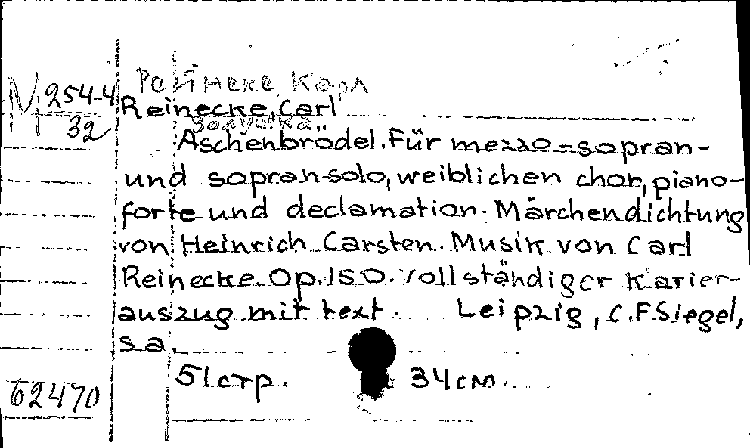 Райнеке, Карл
М 254-4
32
Reinecke, Carl
Золушка
Aschenbrödel. Für mezzo-sopran-
und sopran-solo, weiblichen chor, piano-
forte und declamation. Märchendichtung
von Heinrich Carsten. Musik von Carl
Reinecke. Op. 150. Vollständiger Klavier-
auszug mit text. Leipzig, C.F. Siegel,
s.a.
51 стр. 34 см.
62470